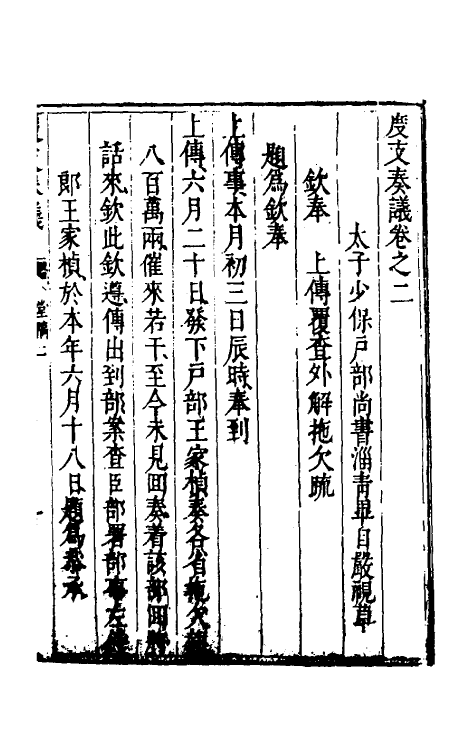 度支奏議卷之二
太子少保戶部尚書淄青畢自嚴視草
欽奉 上傳覆查外解拖欠疏
題爲欽奉
上傳事本月初三日辰時奉到
上傳六月二十日發下戶部王家楨奏各省拖欠
八百萬兩催來若干至今未見回奏着該部回
話來欽此欽遵傳出到部案查臣部署部事左侍
郎王家楨於本年六月十八日題爲恭承
度支奏議
堂稿二